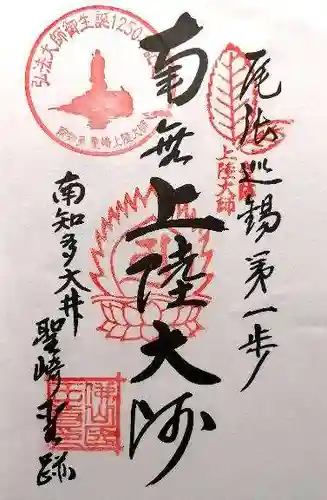 尾張巡錫第一歩
南無上陸大師
南知多大井
聖崎霊跡
弘法大師御生誕1250年記念
聖崎上陸大師
上陸大師